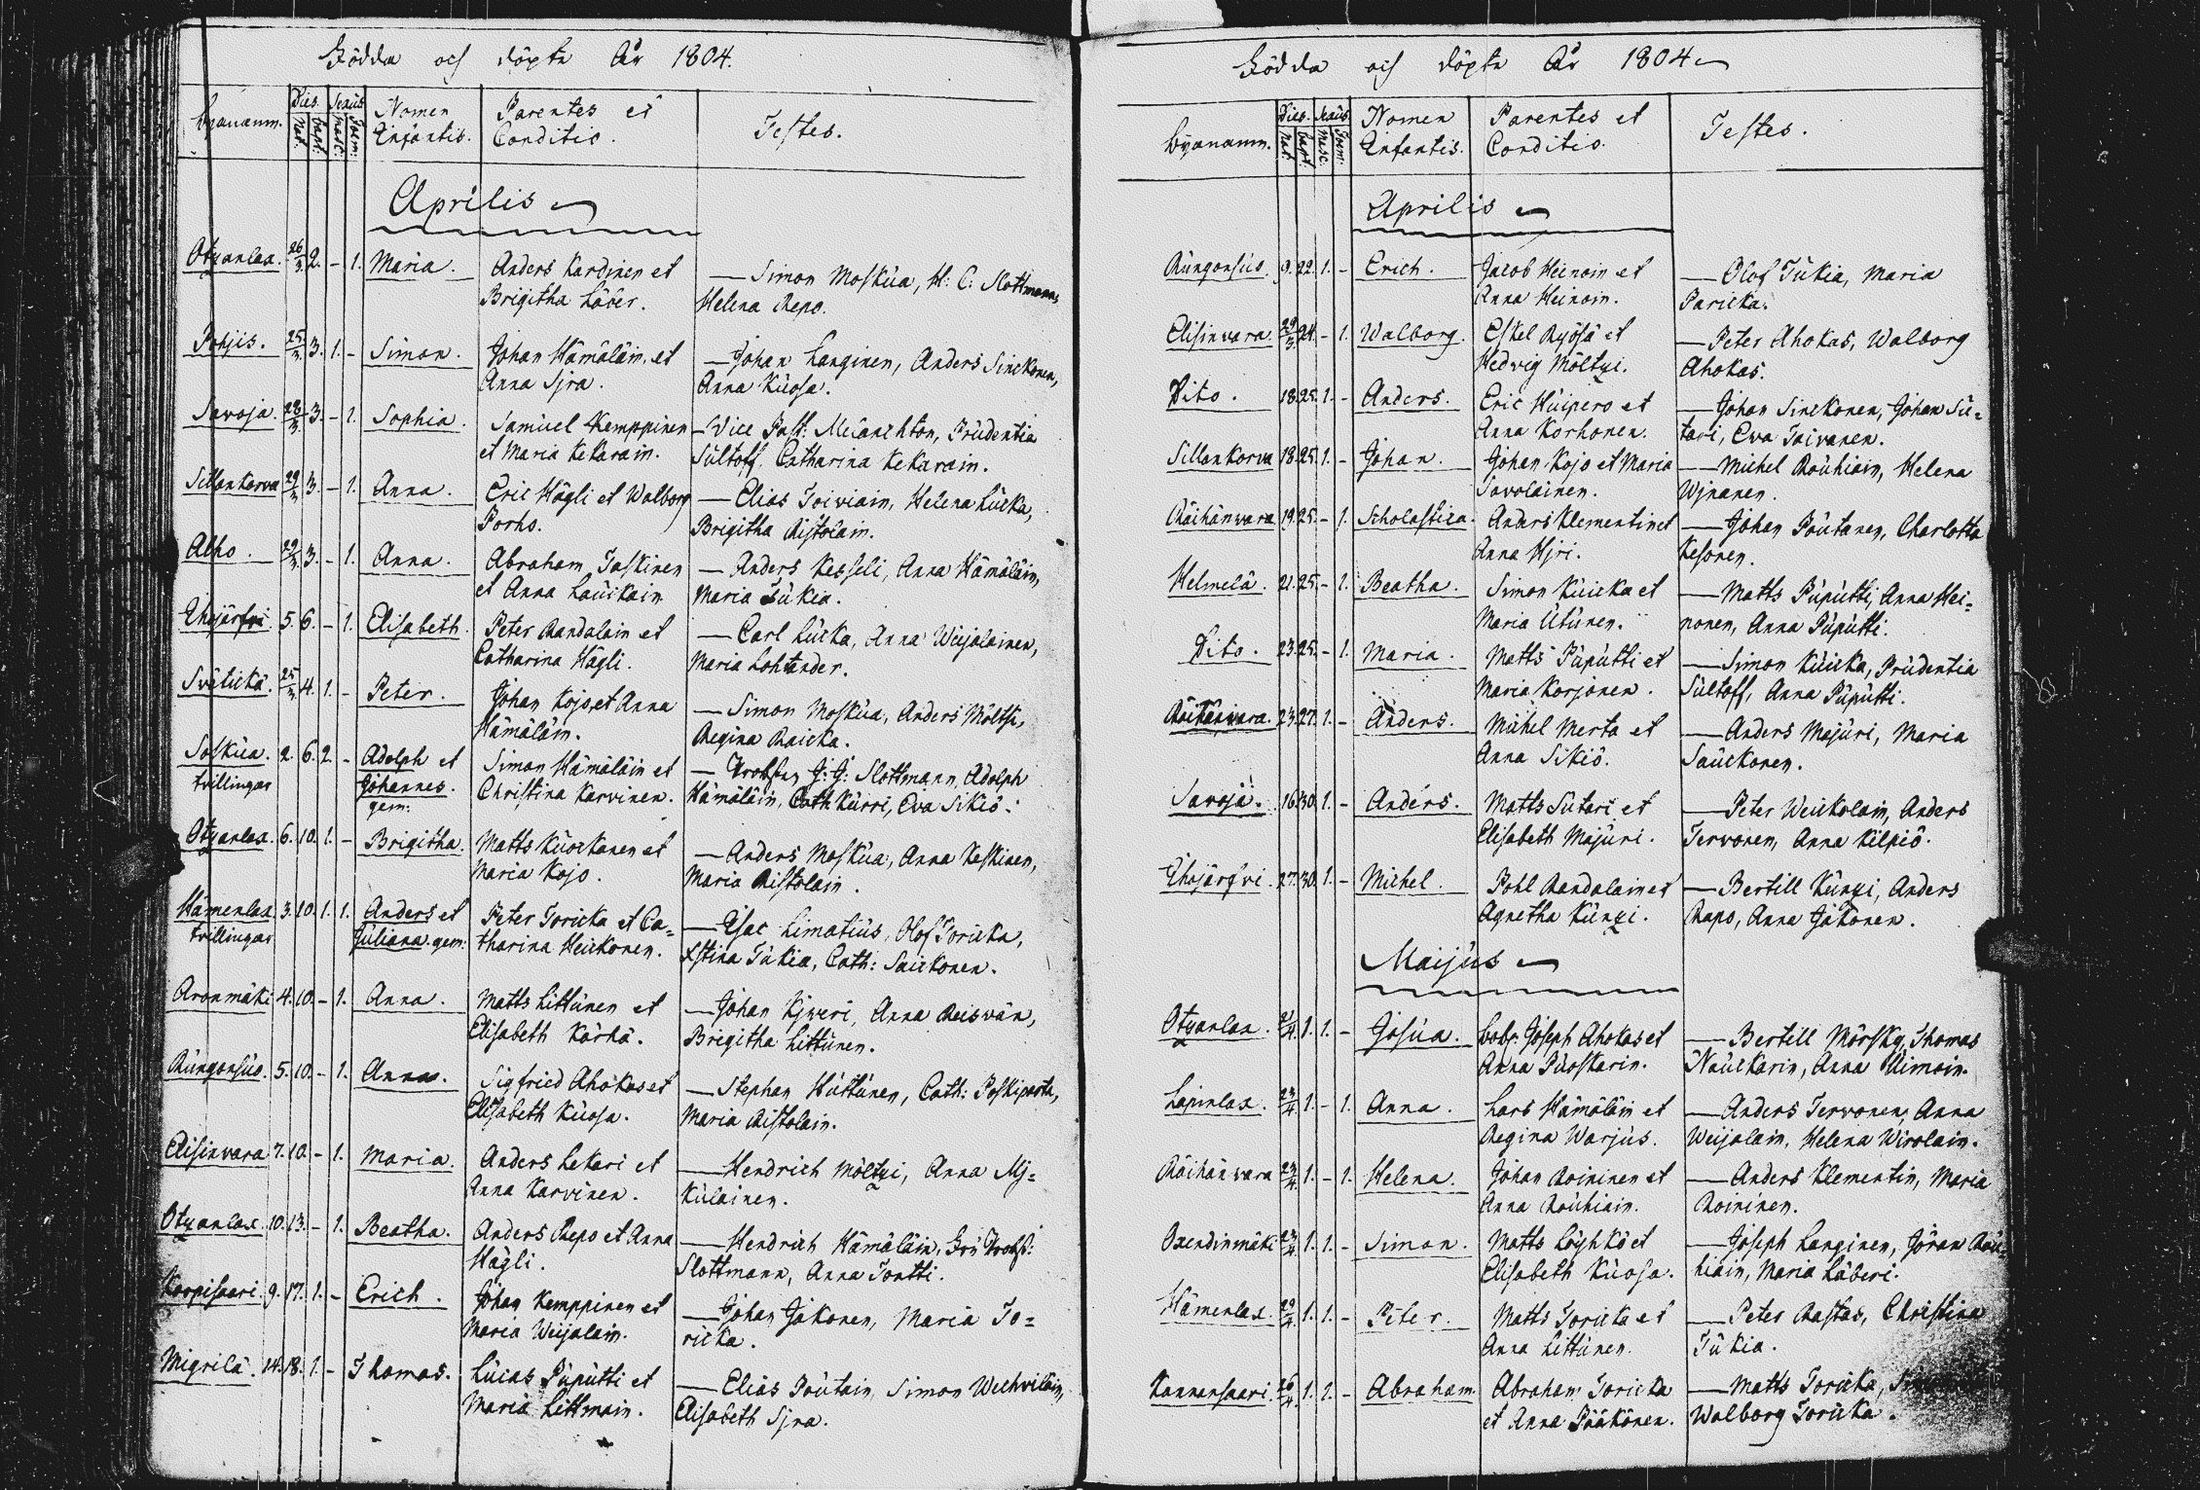 Födda och döpta År 1804.
Byanamn. Dies. Sexus Nomen Infantis. Parentes et Conditio. Testes.
Nat. bapt. Masc: Foem:
Aprilis
Otyanlax. 26/3. 2. - 1. Maria. Anders Kardinen et — Simon Moskua, H: C: Slottmann,
Brigitha Lööer. Helena Repo.
Pohjis. 25/3. 3. 1. - Simon. Johan Hämäläin, et — Johan Langinen, Anders Sinckonen,
Anna Sjra. Anna Kuosa.
Savoja. 28/3. 3. - 1. Sophia. Samuel Kemppinen — Vice Past: Melanchton, Prudentia
et Maria Kekarain. Sultoff, Catharina Kekarain.
Sillankorva 29/3. 3. - 1. Anna. Eric Hägli et Walborg — Elias Toiviain, Helena Lucka,
Porho. Brigitha Ristolain.
Alho. 29/3. 3. - 1. Anna. Abraham Taskinen — Anders Kesseli, Anna Hämäläin,
et Anna Lauikain Maria Tukia.
Ihojärfvi 5. 6. - 1. Elisabeth. Peter Randalain et — Carl Lucka, Anna Weijalainen,
Catharina Hägli. Maria Lohtander.
Svätickä. 25/3. 4. 1. - Peter. Johan Kojo, et Anna — Simon Moskua, Anders Möltsi,
Hämäläin. Regina Raicka.
Soskua. 2. 6. 2. - Adolph et Simon Hämäläin et — Probsten J: G: Slottmann, Adolph
tvillingar Johannes. gem: Christina Karvinen. Hämäläin, Cath Kurri, Eva Sikiö.
Otyanlax. 6. 10. 1. - Brigitha. Matts Kuockanen et — Anders Moskua, Anna Keskinen,
Maria Kojo. Maria Ristolain.
Hämenlax. 3. 10. 1. 1. Anders et Peter Toricka et Ca= — Isac Limatius, Olof Toricka,
tvillingar Juliana. gem: tharina Heickonen. Xstina Tukia, Cath: Saickonen.
Aronmäki 4. 10. - 1. Anna. Matts Littunen et — Johan Kjveri, Anna Reisvän,
Elisabeth Kärhä. Brigitha Littunen.
Rungonsuo. 5. 10. - 1. Anna. Sigfried Ahokas et — Stephan Huttunen, Cath: Poskiparta,
Elisabeth Kuosa. Maria Ristolain.
Elisinvara 7. 10. - 1. Maria. Anders Lekari et — Hendrich Möltzi, Anna Mj=
Anna Karvinen. kulainen.
Otyanlax. 10. 13. - 1. Beatha. Anders Repo et Anna — Hendrich Hämäläin, Fru Probst:
Hägli. Slottmann, Anna Tontti.
Korpisaari. 9. 17. 1. - Erich. Johan Kemppinen et — Johan Jakonen, Maria To=
Maria Weijalain. ricka.
Migrilä. 14. 18. 1. - Thomas. Lucas Puputti et — Elias Poutain, Simon Wechviläin,
Maria Littmain. Elisabeth Sjra.
Födda och döpta År 1804
Byanamn. Dies. Sexus. Nomen Infantis. Parentes et Conditio. Testes.
Nat. bapt. Masc. Foem:
Aprilis
Rungonsuo. 9. 22. 1. - Erich. Jacob Heinoin et — Olof Tukia, Maria
Anna Heinoin. Paricka.
Elisinvara. 29/3. 24. - 1. Walborg. Eskel Ryösä et — Peter Ahokas, Walborg
Hedvig Möltzi. Ahokas.
Dito. 18. 25. 1. - Anders. Eric Huipero et — Johan Sinckonen, Johan Su=
Anna Korhonen. tari, Eva Toivanen.
Sillankorva 18. 25. 1. - Johan. Johan Kojo et Maria — Michel Rouhiain, Helena
Savolainen. Wjnanen.
Räihänvara 19. 25. - 1. Scholastica. Anders Klementin et — Johan Poutanen, Charlotta
Anna Hjri. Kesonen.
Helmelä. 21. 25. - 1. Beatha. Simon Kuicka et — Matts Puputti, Anna Hei=
Maria Utunen. nonen, Anna Puputti.
Dito. 23. 25. - 1. Maria. Matts Puputti et — Simon Kuicka, Prudentia
Maria Korjonen. Sultoff, Anna Puputti.
Räihänvara. 23. 27. 1. - Anders. Michel Merta et — Anders Majuri, Maria
Anna Sikiö. Sauckonen.
Savoja. 16. 30. 1. - Anders. Matts Sutari et — Peter Weickolain, Anders
Elisabeth Majuri. Tervonen, Anna Kilpiö.
Ihojärfvi. 27. 30. 1. - Michel. Pohl Randalain et — Bertill Kunzi, Anders
Agnetha Kunzi. Raps, Anna Jakonen.
Maijus
Otyanlax. 1. 1. - Josua. Joseph Ahokas et — Bertill Mörsky, Thomas
Anna Puoskarin. Nauckarin, Anna Uimoin.
Lapinlax. 23/4. 1. - 1. Anna. Lars Hämäläin et — Anders Tervonen, Anna
Regina Warjus. Weijalain, Helena Wirolain.
Räihänvara 23/4. 1. - 1. Helena. Johan Roininen et — Anders Klementin, Maria
Anna Rouhiain. Roininen.
Oxendinmäki 23/4. 1. 1. - Simon. Matts Löyhkö et — Joseph Langinen, Jöran Rou=
Elisabeth Kuosa. hiain, Maria Läberi.
Hämenlax. 29/4. 1. 1. - Peter. Matts Toricka et — Peter Rastas, Christina
Anna Littunen. Tukia.
Kannansaari. 26/4. 1. 1. - Abraham Abraham Toricka — Matts Toricka,
et Anna Pääkönen. Walborg Toricka.